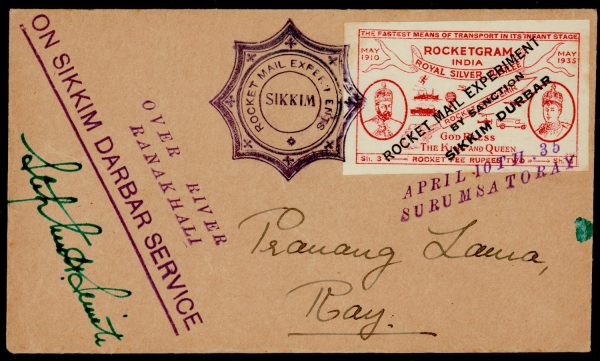 ON SIKKIM DARBAR SERVICE
OVER RIVER
RANAKHALI
ROCKET MAIL EXPERIMENTS
SIKKIM
THE FASTEST MEANS OF TRANSPORT IN ITS INFANT STAGE
MAY
1910
ROCKETGRAM
INDIA
ROYAL SILVER
MAY
1935
ROCKET MAIL EXPERIMENT
BY SANCTION
SIKKIM DURBAR
GOD BLESS
THE KING AND QUEEN
Sh. 3 ROCKET FEE RUPEES TWO Sh. 3
APRIL 10TH. 35
SURUMSA TO RAY
Pranang Lama,
Ray.
Stephen H. Smith